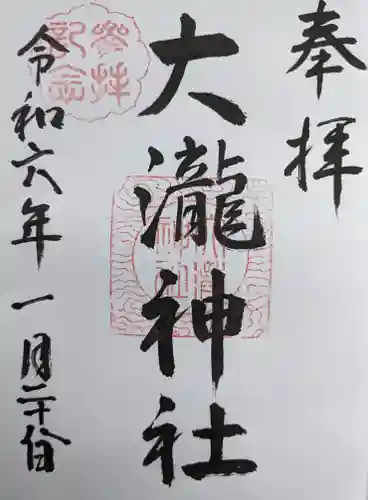 奉拝
大瀧神社
令和六年一月二十八日
参拝記念